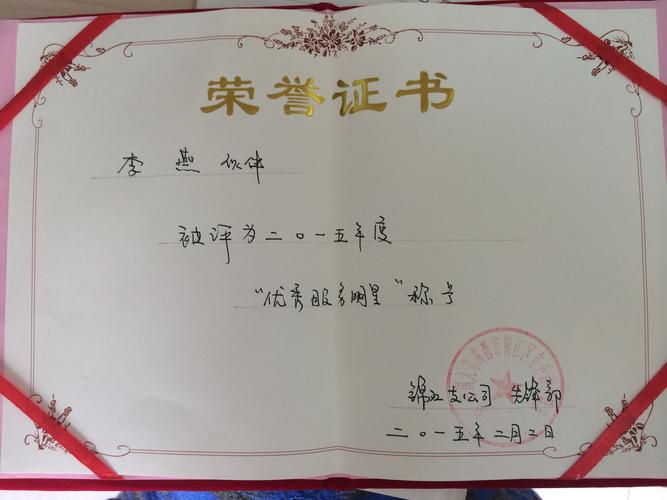 荣誉证书
李燕伙伴
被评为二〇一五年度
“优秀服务明星”称号
成都市锦江区
锦江支公司 先锋部
二〇一五年二月二日